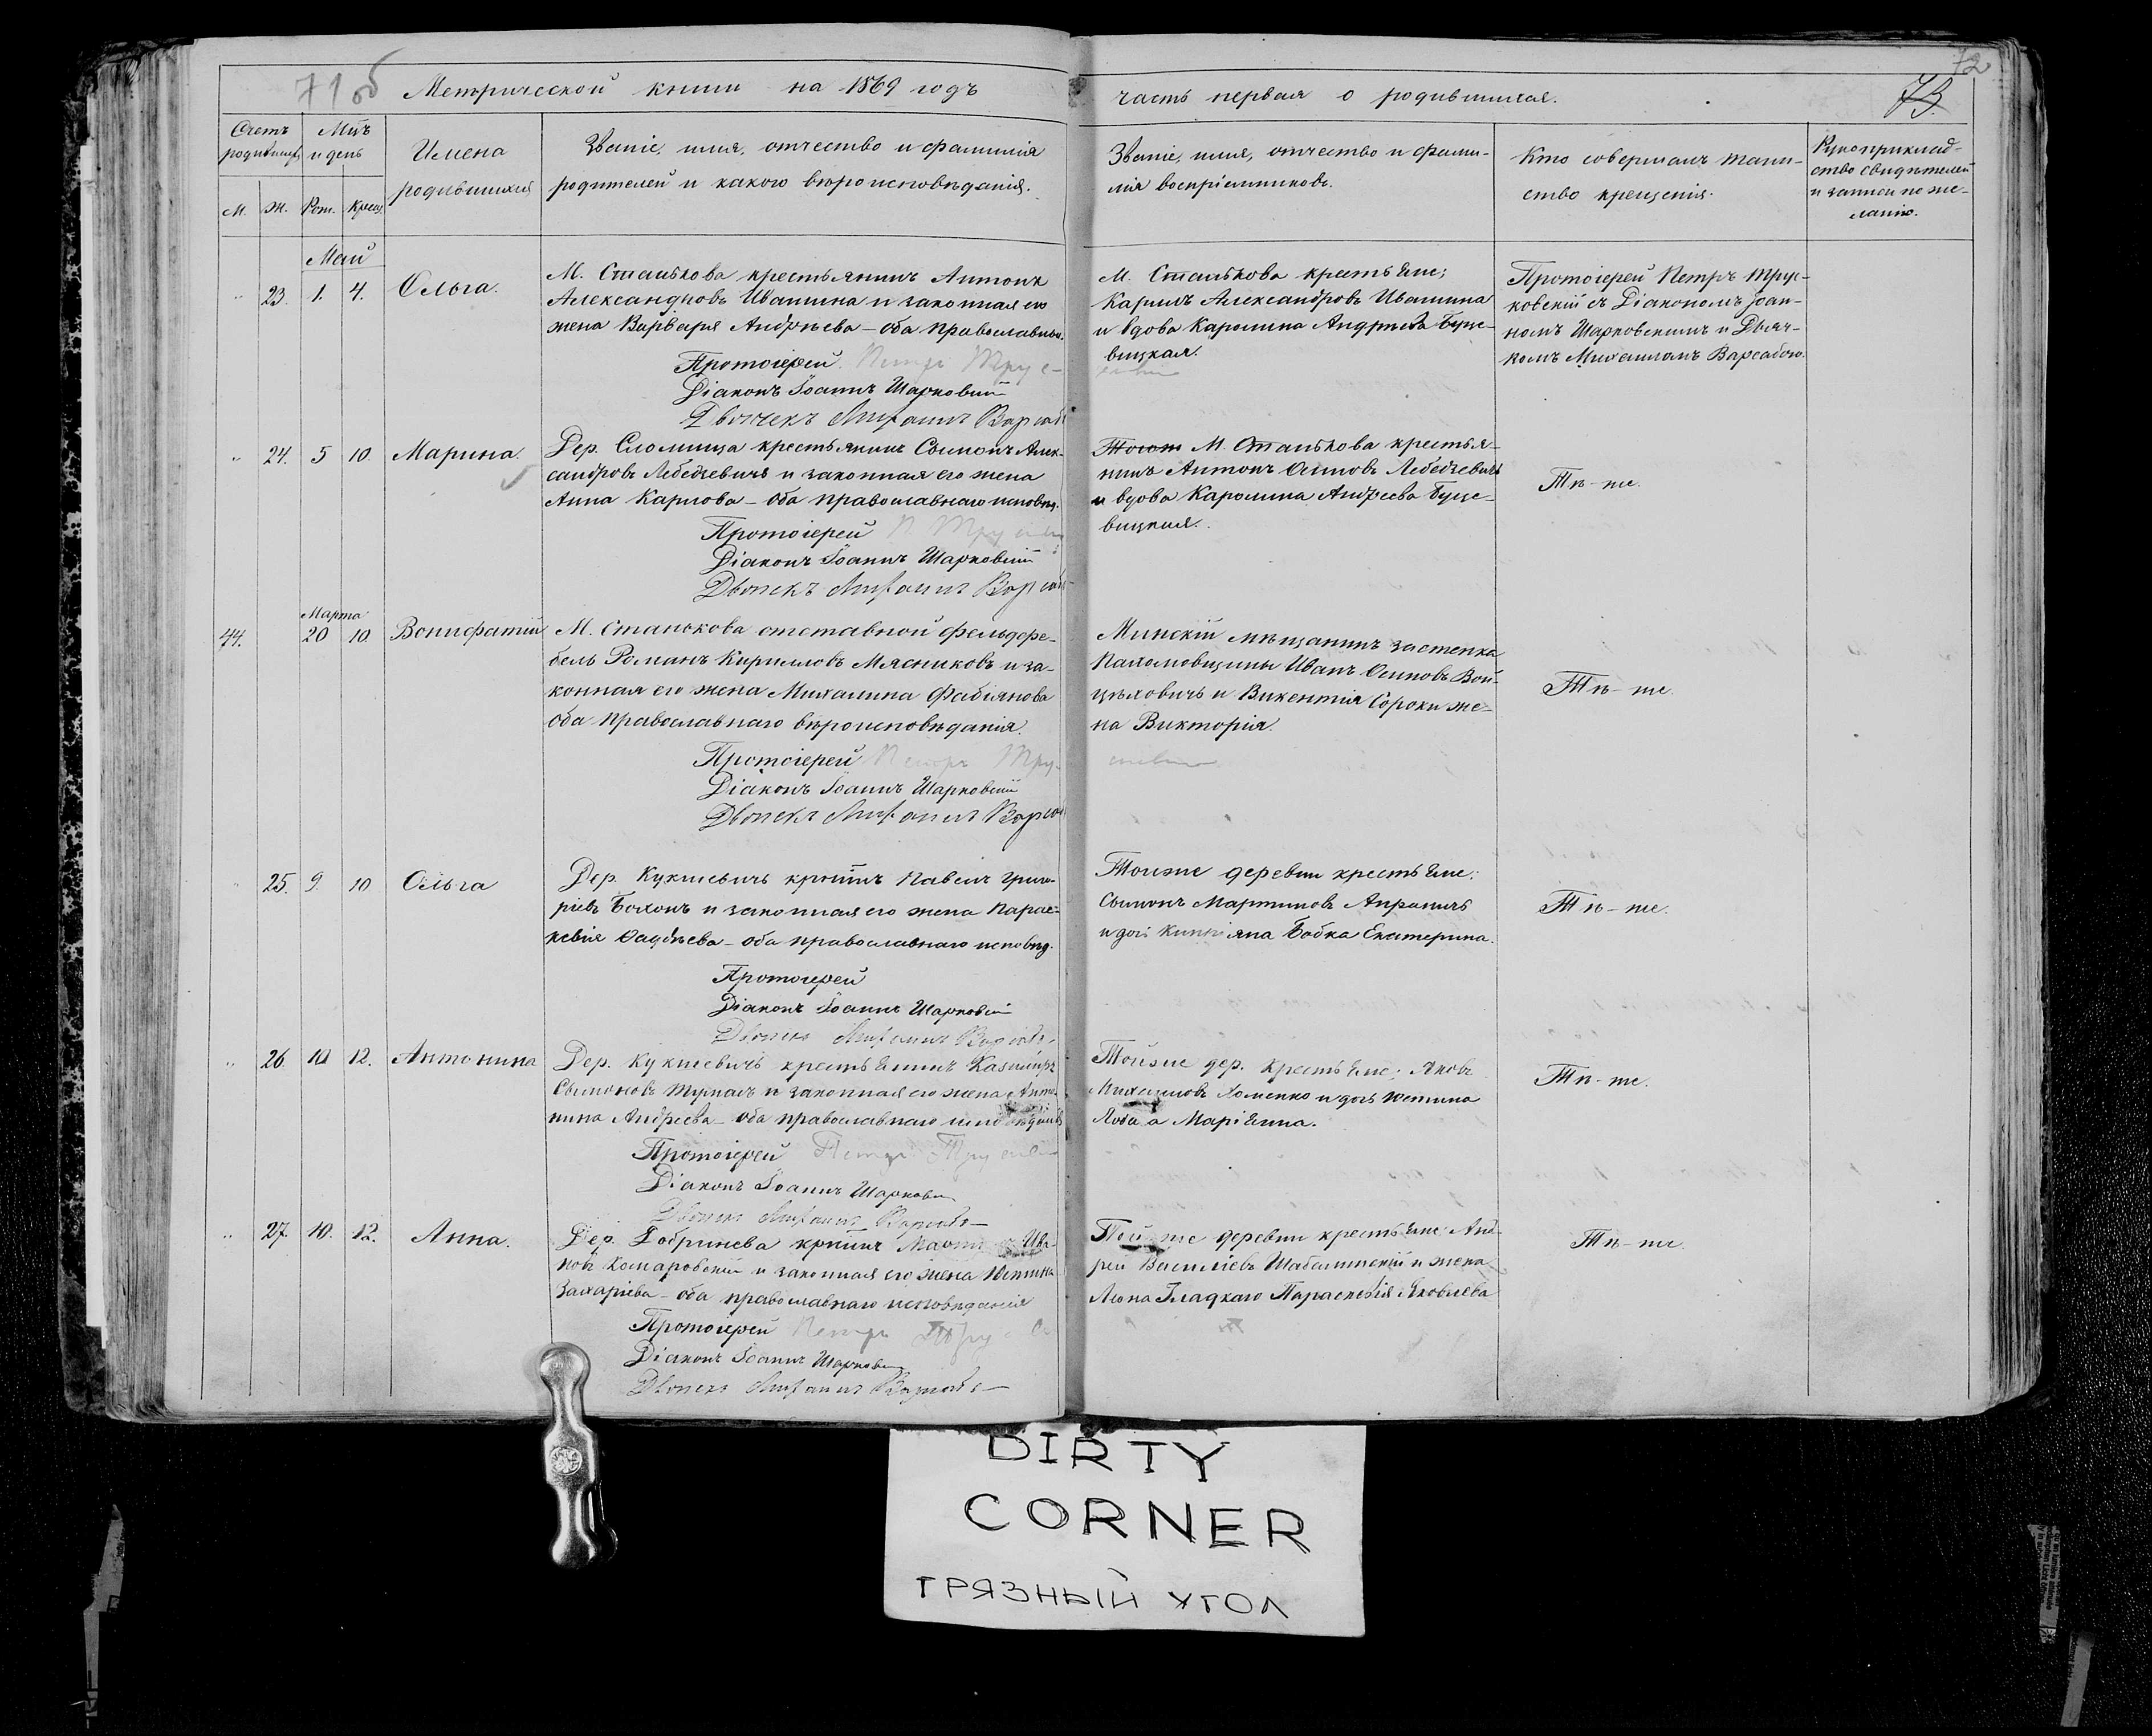 71 об Метрической книги на 1869 годъ
часть первая о родившихся.
72
73.
Счетъ родившихся
Мцъ и день
Имена
родившихся
Званіе, имя, отчество и фамилія
родителей и какого вѣроисповѣданія.
Званіе, имя, отчество и фами-
лія воспріемниковъ.
Кто совершалъ таин-
ство крещенія.
Рукоприклад-
ство свидѣтелей
и записи по же-
ланію.
М. Ж. Рож. Крещ.
Май
23. 1. 4. Ольга.
М. Станькова крестьянинъ Антонъ
Александровъ Ивашина и законная его
жена Варвара Андрѣева - оба православные.
Протоіерей Петръ Трус-
Діаконъ Іоаннъ Шарковскій
Дьячекъ Михаилъ Варсоб
М. Станькова крестьяне;
Карлъ Александровъ Ивашина
и вдова Каролина Андрѣева Буце-
вицкая.
Протоіерей Петръ Трус-
ковскій съ Діакономъ Іоан-
номъ Шарковскимъ и Дьяч-
комъ Михаиломъ Варсабою.
24. 5 10. Марина.
Дер. Сломища крестьянинъ Сымонъ Алек-
сандровъ Лебедзевичъ и законная его жена
Анна Карлова - оба православнаго исповѣд.
Протоіерей П Трус
Діаконъ Іоаннъ Шарковскій
Дьячекъ Михаилъ Варсоб
М. Станькова крестья-
нинъ Антонъ Осиповъ Лебедзевичъ
и вдова Каролина Андреева Буце-
вицкая.
Тѣ-же.
Марта
44. 20 10. Вонифатій
М. Станькова отставной фельдфе-
бель Романъ Кирилловъ Мясниковъ и за-
конная его жена Михалина Фабіянова
оба православнаго вѣроисповѣданія.
Протоіерей Петръ Трус-
Діаконъ Іоаннъ Шарковскій
Дьячекъ Михаилъ Варсоб
Минскій мѣщанинъ застенка
Пахомовщины Иванъ Осиповъ Вой-
цѣховичъ и Викентія Сороки же-
на Викторія.
Тѣ-же.
25. 9. 10 Ольга
Дер. Кукшевичъ крстнинъ Павелъ Григо-
ріевъ Бохонъ и законная его жена Парас-
кевія Фадѣева - оба православнаго исповѣд.
Протоіерей
Діаконъ Іоаннъ Шарковскій
Дьячекъ Михаилъ Варсоба
Тойже деревни крестьяне:
Сымонъ Мартиновъ
и дочь Кипріяна Бобка Екатерина.
Тѣ-же.
26. 10 12. Антонина
Дер. Кукшевичъ крестьянинъ Казиміръ
Сымоновъ и законная его жена Анто-
нина Андреева - оба православнаго исповѣданія
Протоіерей Петръ Трус
Діаконъ Іоаннъ Шарковскій
Дьячекъ Михаилъ Варсоба
Тойже дер. крестьяне; Яковъ
Михайловъ Хоменко и дочь Юстина
Маріянна.
Тѣ-же.
27. 10. 12. Анна.
Дер. Добринева крстнинъ Ива-
новъ Комаровскій и законная его жена Юстина
Захаріева - оба православнаго исповѣданія
Протоіерей Петръ Трус
Діаконъ Іоаннъ Шарковскій
Дьячекъ Михаилъ Варсоба
Той же деревни крестьяне Анд-
рей Василіевъ и жена
Гладкаго Параскевія Яковлева
Тѣ-же.
DIRTY
CORNER
ГРЯЗНЫЙ УГОЛ